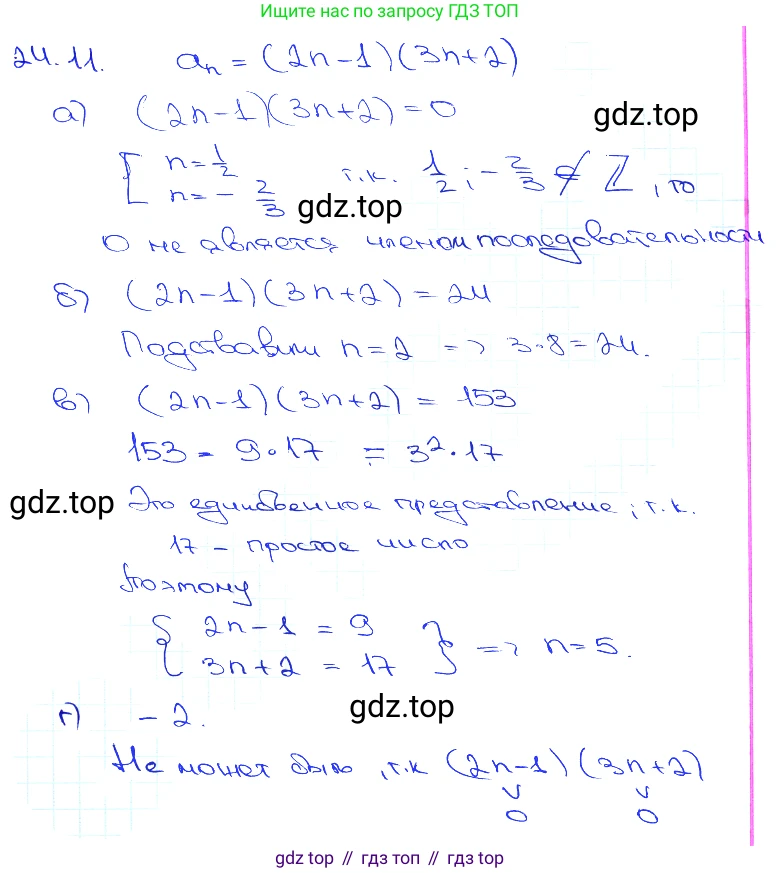 Ищите нас по запросу ГДЗ ТОП
24.11. aₙ = (2n-1)(3n+2)
а) (2n-1)(3n+2)=0
gdz.top
[ n=1/2
n=-2/3 т.к. 1/2; -2/3 ∉ ℤ, то
gdz.top
0 не является членом последовательности
б) (2n-1)(3n+2)=24
Подставим n=2 => 3·8=24.
в) (2n-1)(3n+2) = 153
153 = 9·17 = 3²·17
gdz.top Это единственное представление, т.к.
17 - простое число
Поэтому
{ 2n-1 = 9
3n+2 = 17 } => n=5.
г) -2.
gdz.top
Не может быть, т.к (2n-1)(3n+2)
∨ ∨
0 0
gdz top // гдз топ // gdz top